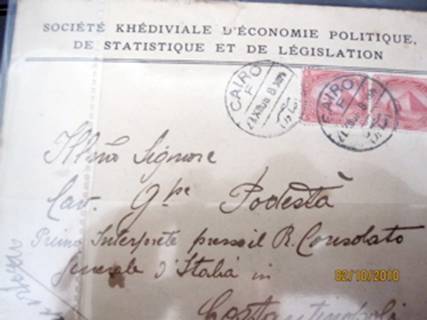 SOCIÉTÉ KHÉDIVIALE D'ÉCONOMIE POLITIQUE,
DE STATISTIQUE ET DE LÉGISLATION
CAIRO
F
CAIRO
F
Illmo Signore
Cav. Gpe Podestà
Primo Interprete presso il R. Consolato
Generale d'Italia in
Costantinopoli
02/10/2010